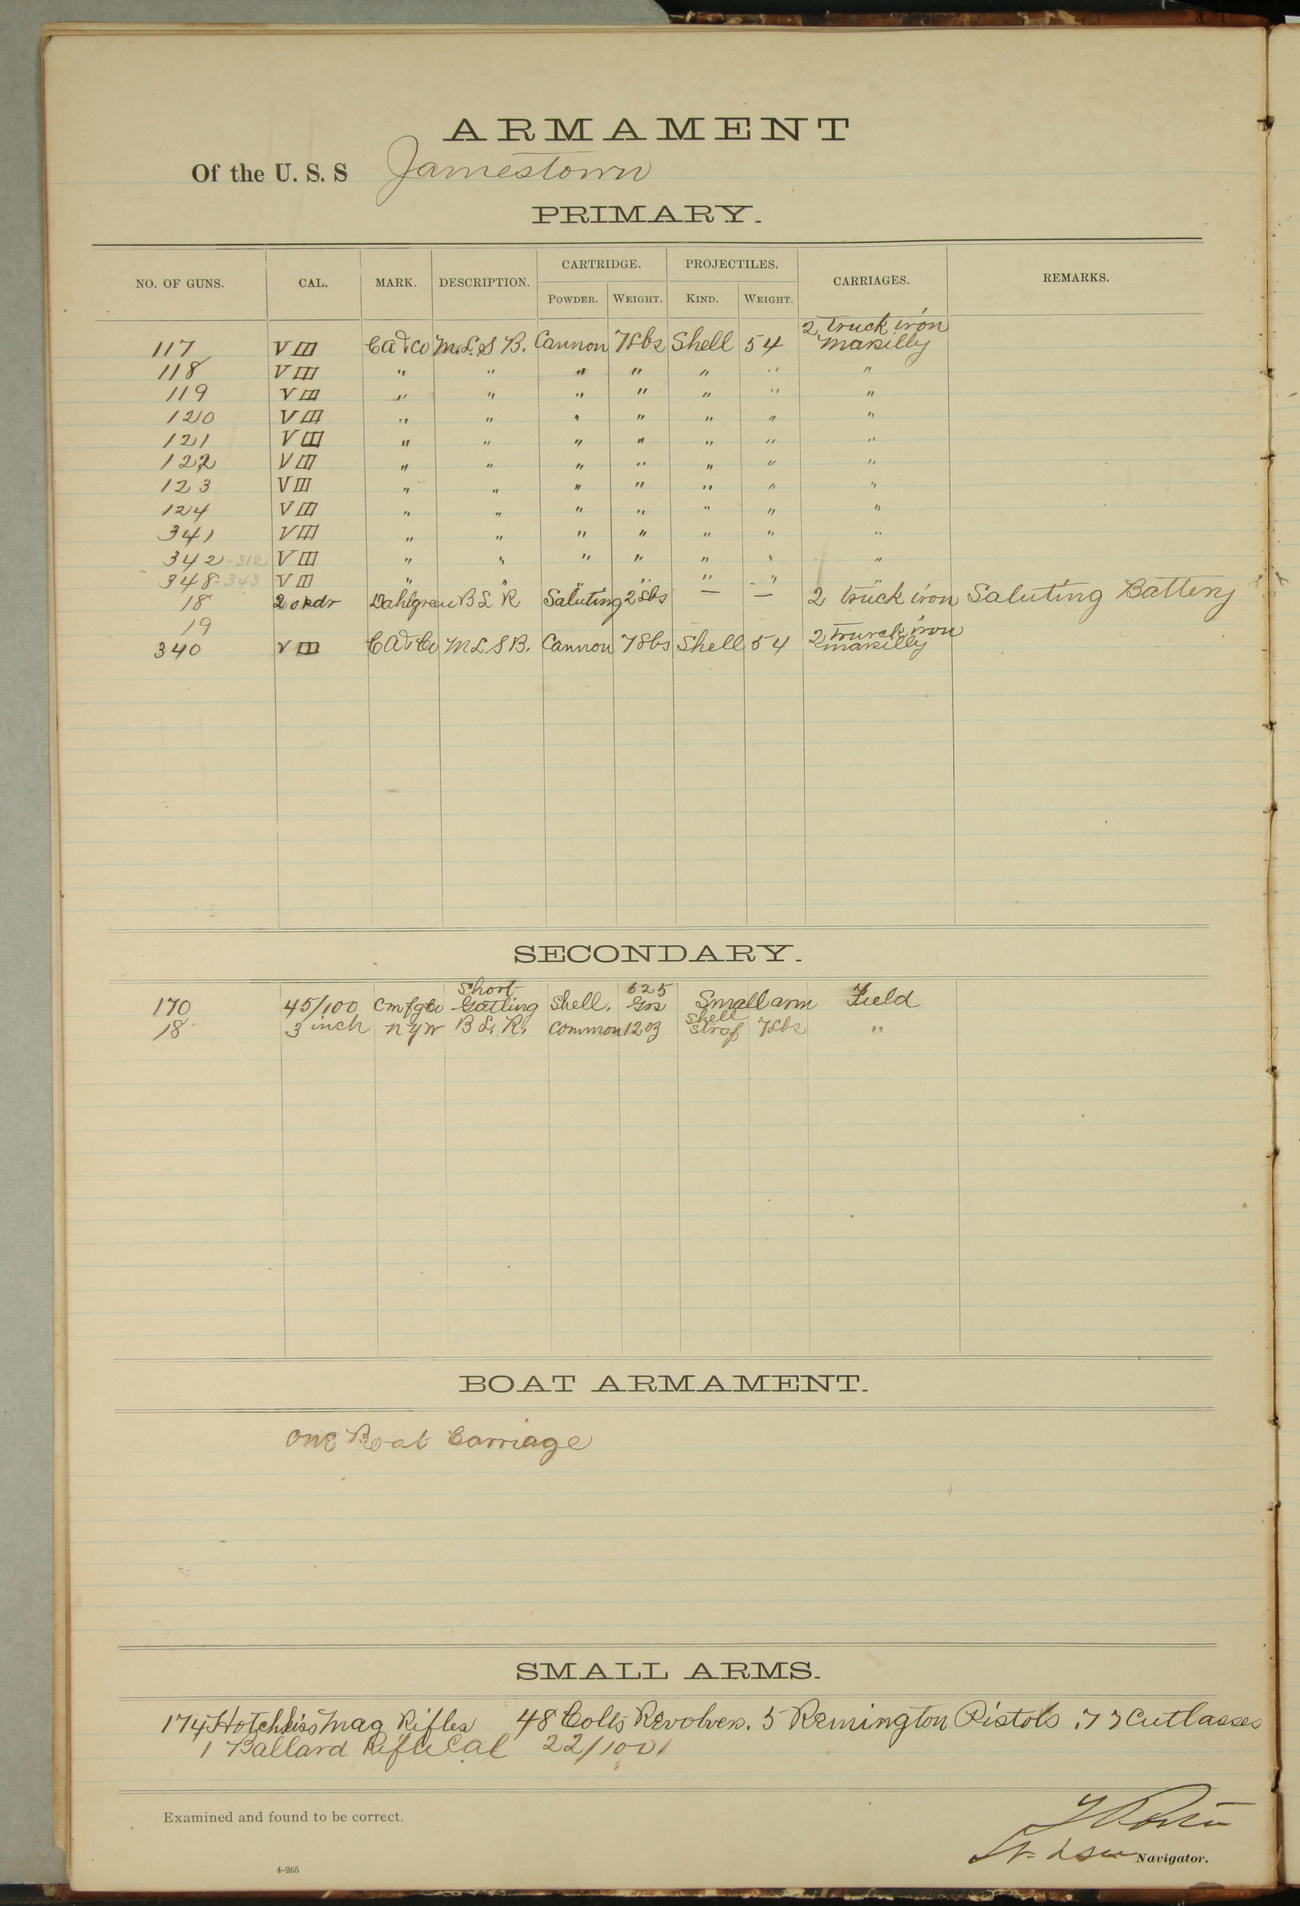 ARMAMENT
Of the U. S. S Jamestown
PRIMARY.
NO. OF GUNS. CAL. MARK. DESCRIPTION. CARTRIDGE. PROJECTILES. CARRIAGES. REMARKS.
POWDER. WEIGHT. KIND. WEIGHT.
117 VIII CA&Co M.L.S B. Cannon 7 lbs Shell 54 2 truck iron Marsilly
118 VIII " " " " " " "
119 VIII " " " " " " "
120 VIII " " " " " " "
121 VIII " " " " " " "
122 VIII " " " " " " "
123 VIII " " " " " " "
124 VIII " " " " " " "
341 VIII " " " " " " "
342 -312 VIII " " " " " " "
348 -343 VIII " " " " " " "
18 20 pdr Dahlgren B L R Saluting 2 lbs — — 2 truck iron Saluting Battery
19
340 VIII CA&Co M L S B. Cannon 7 lbs Shell 54 2 truck iron marsilly
SECONDARY.
170 45/100 Cmfg Co Short Gatling Shell. 625 Grs Small arm Field
18 3 inch n y w B L. R. Common 12 oz Shell 7 lbs "
BOAT ARMAMENT.
One Boat Carriage
SMALL ARMS.
174 Hotchkiss Mag Rifles 48 Colts Revolvers. 5 Remington Pistols. 77 Cutlasses
1 Ballard Rifle Cal 22/100
Examined and found to be correct.
Navigator.
4–265